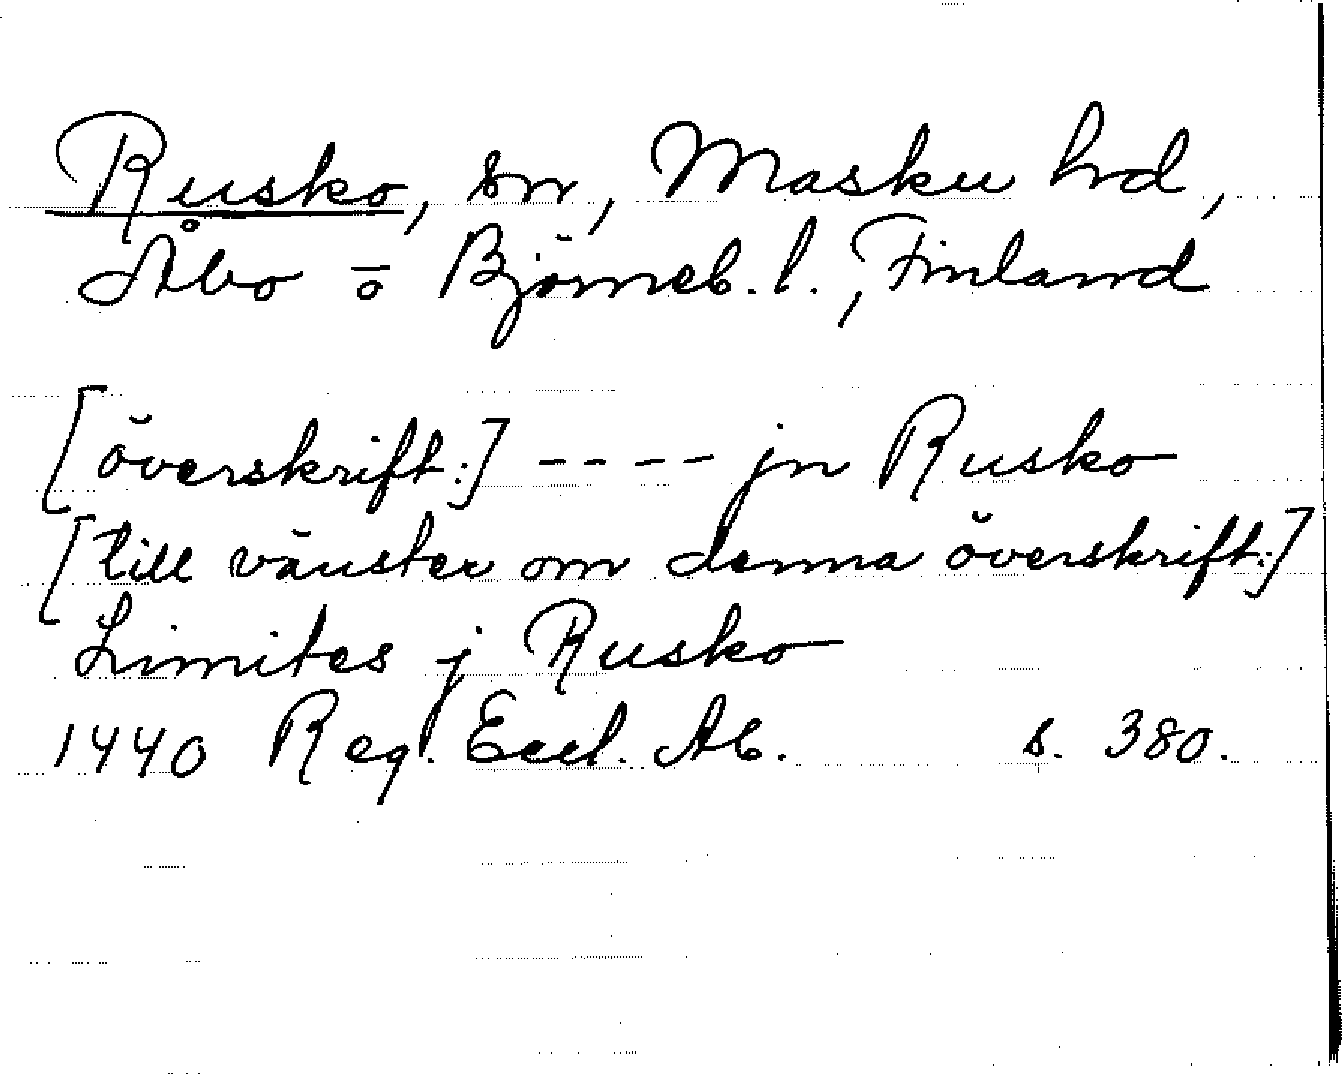 Rusko, sn, Masku hd,
Åbo o Björneb. l., Finland
[överskrift:] ---- jn Rusko
[till vänster om denna överskrift:]
Limites j Rusko
1440 Reg. Eccl. Ab. s. 380.